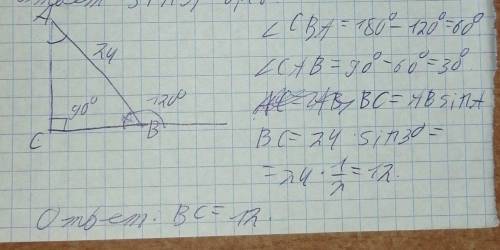 A
24
90° 120°
C B
∠CBA = 180° - 120° = 60°
∠CAB = 90° - 60° = 30°
BC = AB sin A
BC = 24 · sin 30 =
= 24 · 1/2 = 12.
Ответ: BC = 12.